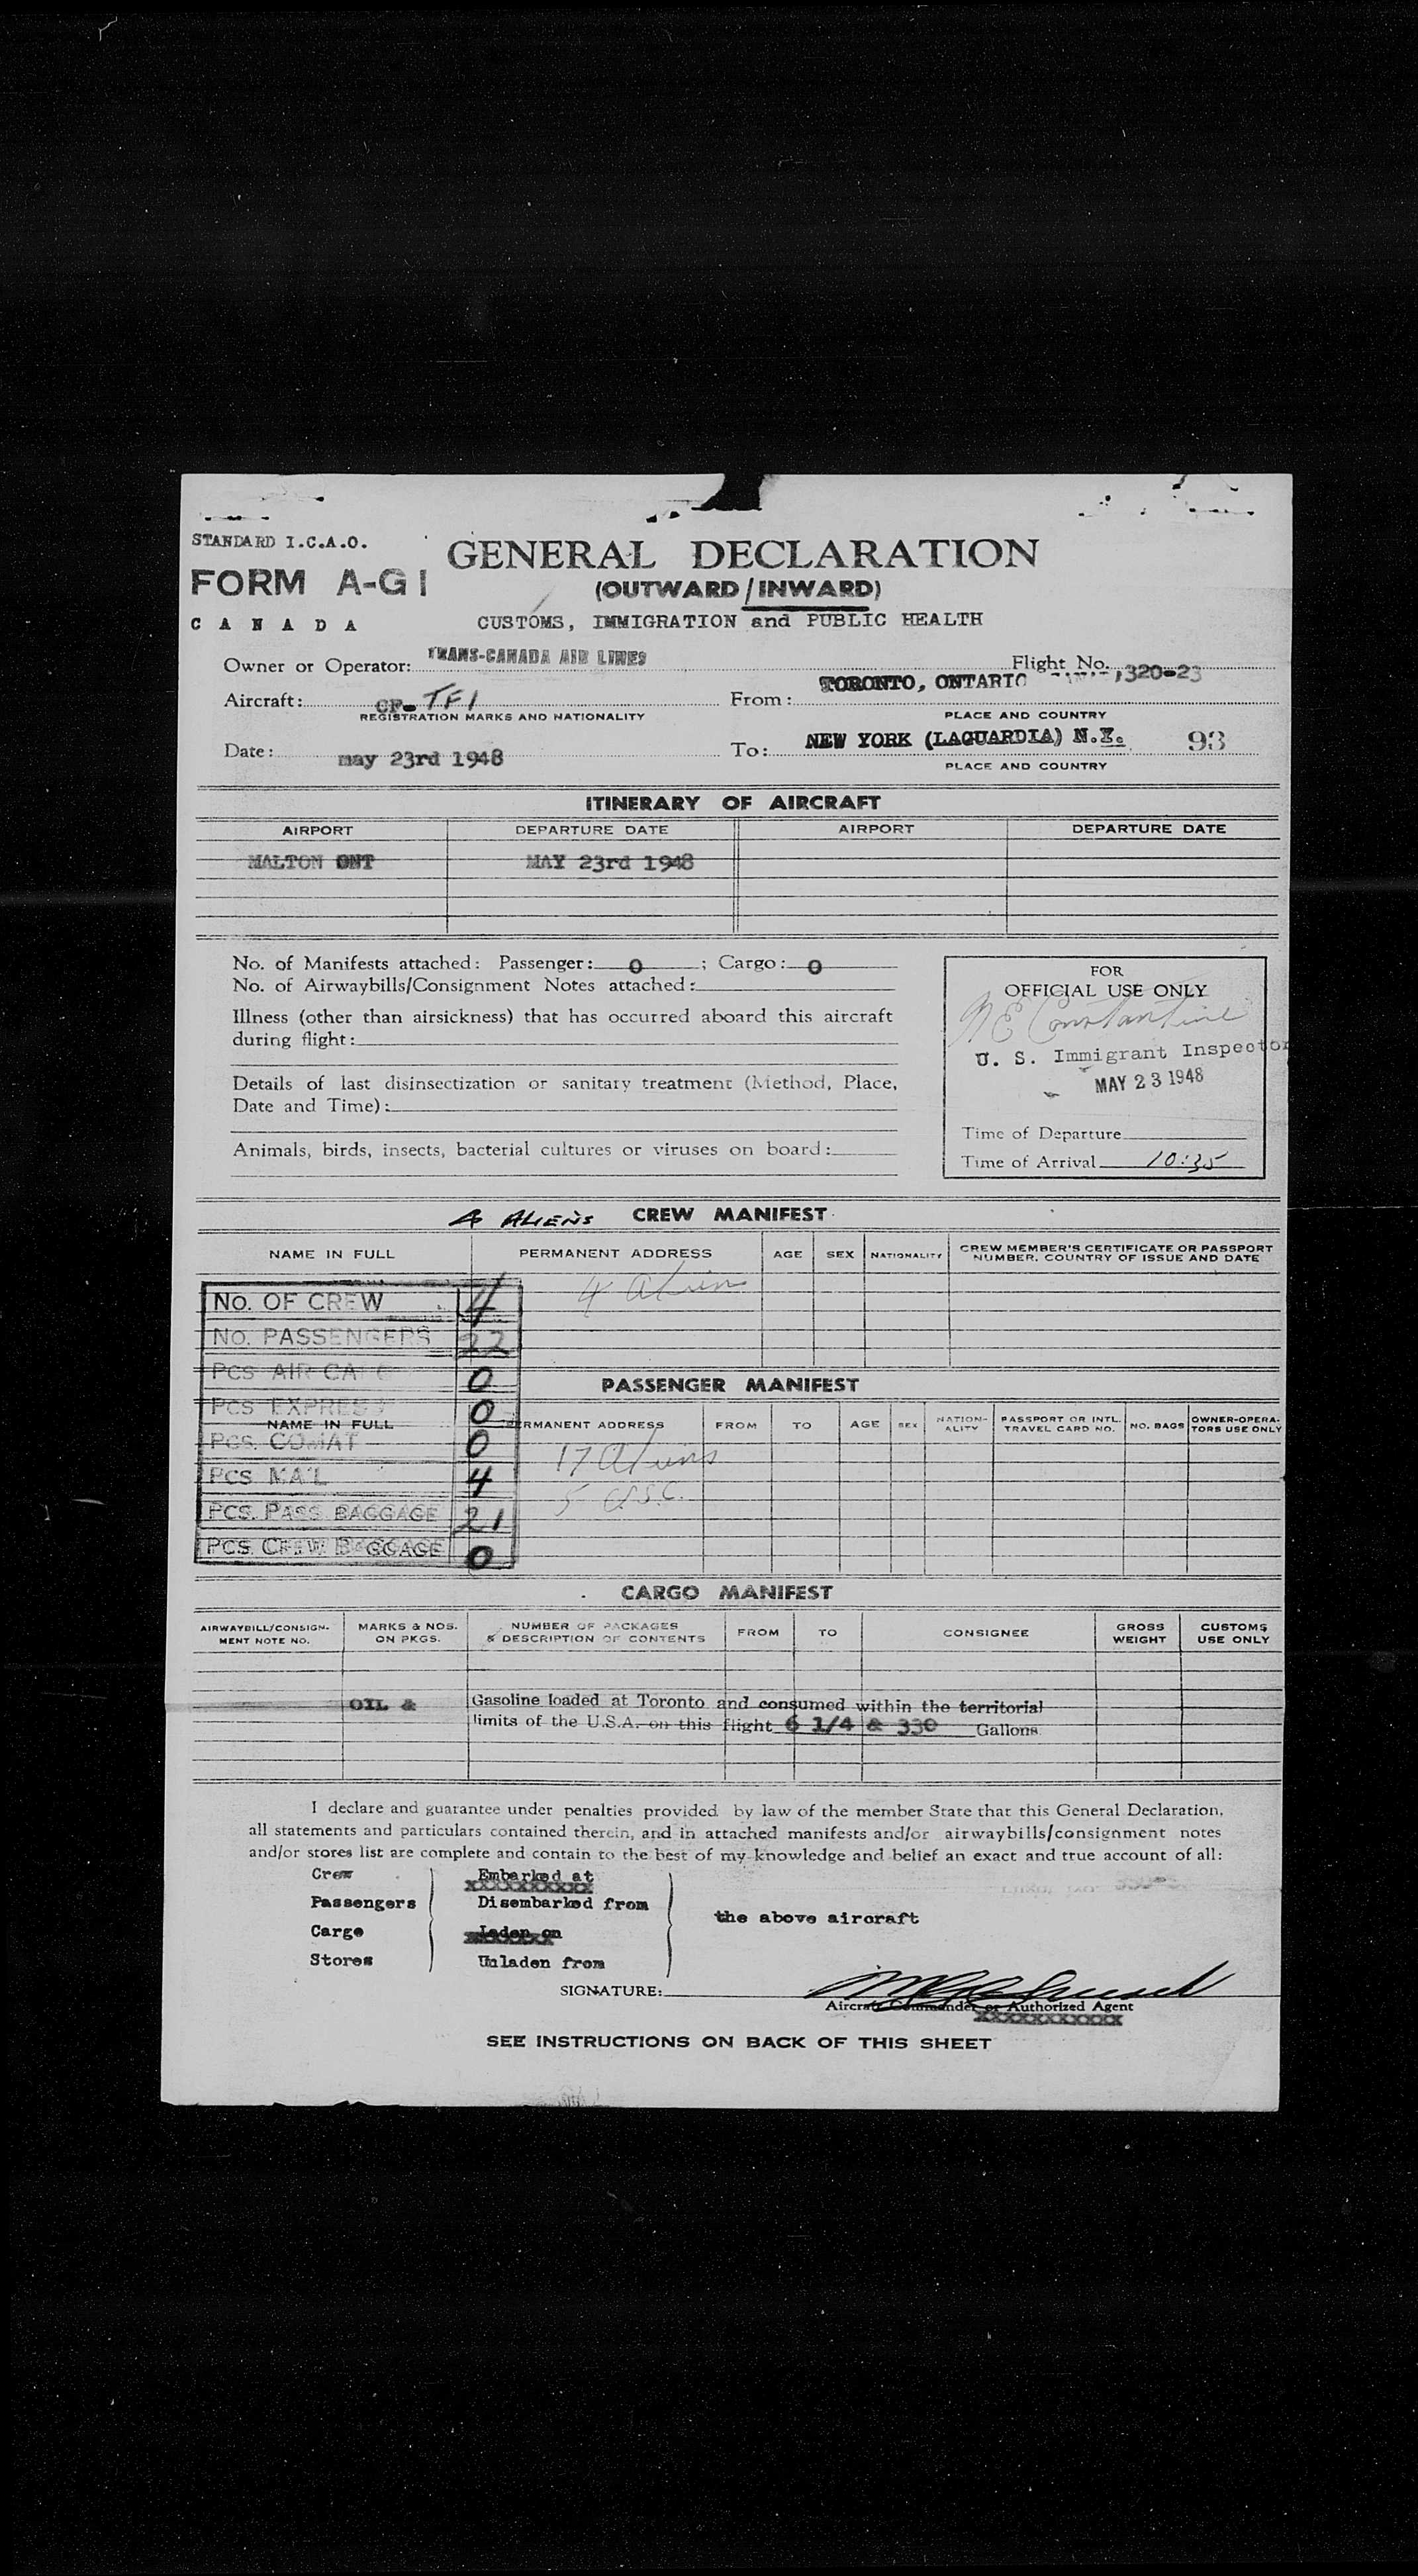 STANDARD I.C.A.O.
FORM A-G1
CANADA
GENERAL DECLARATION
(OUTWARD/INWARD)
CUSTOMS, IMMIGRATION and PUBLIC HEALTH
Owner or Operator: TRANS-CANADA AIR LINES
Flight No. 320-23
Aircraft: CF- TFI
REGISTRATION MARKS AND NATIONALITY
From: TORONTO, ONTARIO
PLACE AND COUNTRY
Date: may 23rd 1948
To: NEW YORK (LAGUARDIA) N.Y. 93
PLACE AND COUNTRY
ITINERARY OF AIRCRAFT
AIRPORT DEPARTURE DATE AIRPORT DEPARTURE DATE
MALTON ONT MAY 23rd 1948
No. of Manifests attached: Passenger: 0 ; Cargo: 0
No. of Airwaybills/Consignment Notes attached:
Illness (other than airsickness) that has occurred aboard this aircraft
during flight:
Details of last disinsectization or sanitary treatment (Method, Place,
Date and Time):
Animals, birds, insects, bacterial cultures or viruses on board:
FOR
OFFICIAL USE ONLY
Constantine
U. S. Immigrant Inspector
MAY 23 1948
Time of Departure
Time of Arrival 10:35
4 ALIENS CREW MANIFEST
NAME IN FULL PERMANENT ADDRESS AGE SEX NATIONALITY CREW MEMBER'S CERTIFICATE OR PASSPORT
NUMBER, COUNTRY OF ISSUE AND DATE
4 aliens
NO. OF CREW 4
NO. PASSENGERS 22
PCS AIR CARGO 0
PCS EXPRESS 0
PCS. COMAT 0
PCS MAIL 4
PCS. PASS BAGGAGE 21
PCS. CREW BAGGAGE 0
PASSENGER MANIFEST
NAME IN FULL PERMANENT ADDRESS FROM TO AGE SEX NATION-
ALITY PASSPORT OR INTL.
TRAVEL CARD NO. NO. BAGS OWNER-OPERA-
TORS USE ONLY
17 aliens
5 U.S.C.
CARGO MANIFEST
AIRWAYBILL/CONSIGN-
MENT NOTE NO. MARKS & NOS.
ON PKGS. NUMBER OF PACKAGES
& DESCRIPTION OF CONTENTS FROM TO CONSIGNEE GROSS
WEIGHT CUSTOMS
USE ONLY
OIL & Gasoline loaded at Toronto and consumed within the territorial
limits of the U.S.A. on this flight 6 1/4 & 330 Gallons
I declare and guarantee under penalties provided by law of the member State that this General Declaration,
all statements and particulars contained therein, and in attached manifests and/or airwaybills/consignment notes
and/or stores list are complete and contain to the best of my knowledge and belief an exact and true account of all:
Crew Embarked at
XXXXXXXXXX
Passengers Disembarked from
the above aircraft
Cargo Laden on
Stores Unladen from
SIGNATURE:
Aircraft Commander or Authorized Agent
XXXXXXXXXXXX
SEE INSTRUCTIONS ON BACK OF THIS SHEET